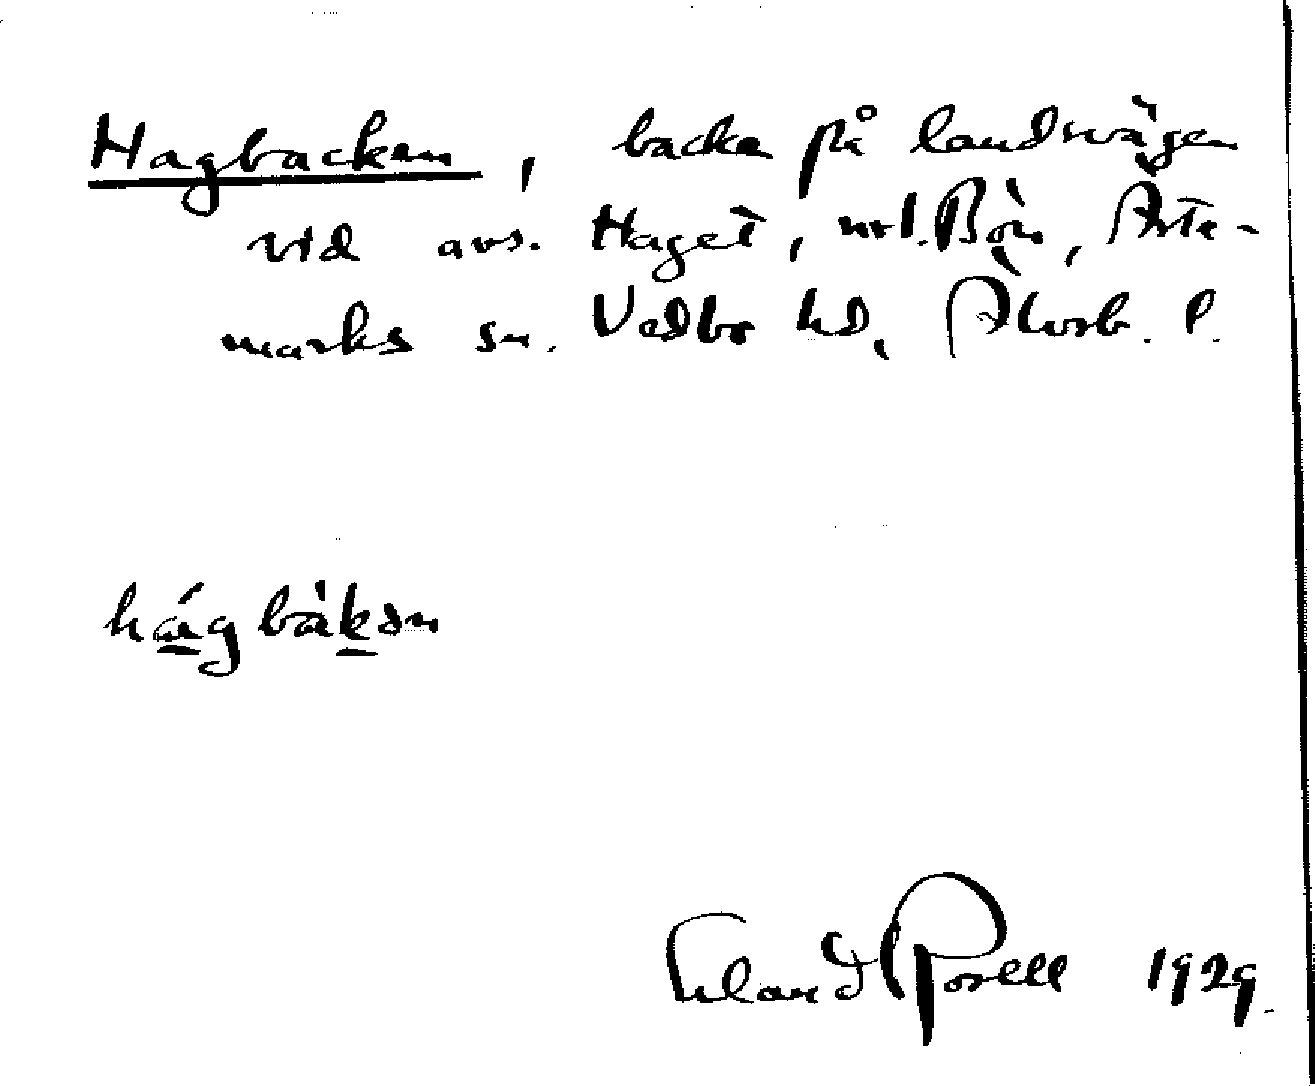 Hagbacken, backe på landsvägen
vid avs. Haget, Bön, Ärte-
marks sn. Vedbo hd, Älvsb. l.
hágbàkən
Erland Rosell 1929.